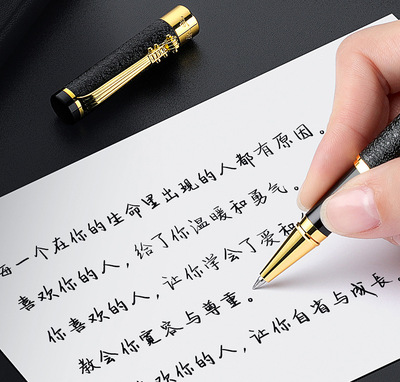 每一个在你的生命里出现的人都有原因。
喜欢你的人，给了你温暖和勇气。
你喜欢的人，让你学会了爱和
教会你宽容与尊重。
欢你的人，让你自省与成长。